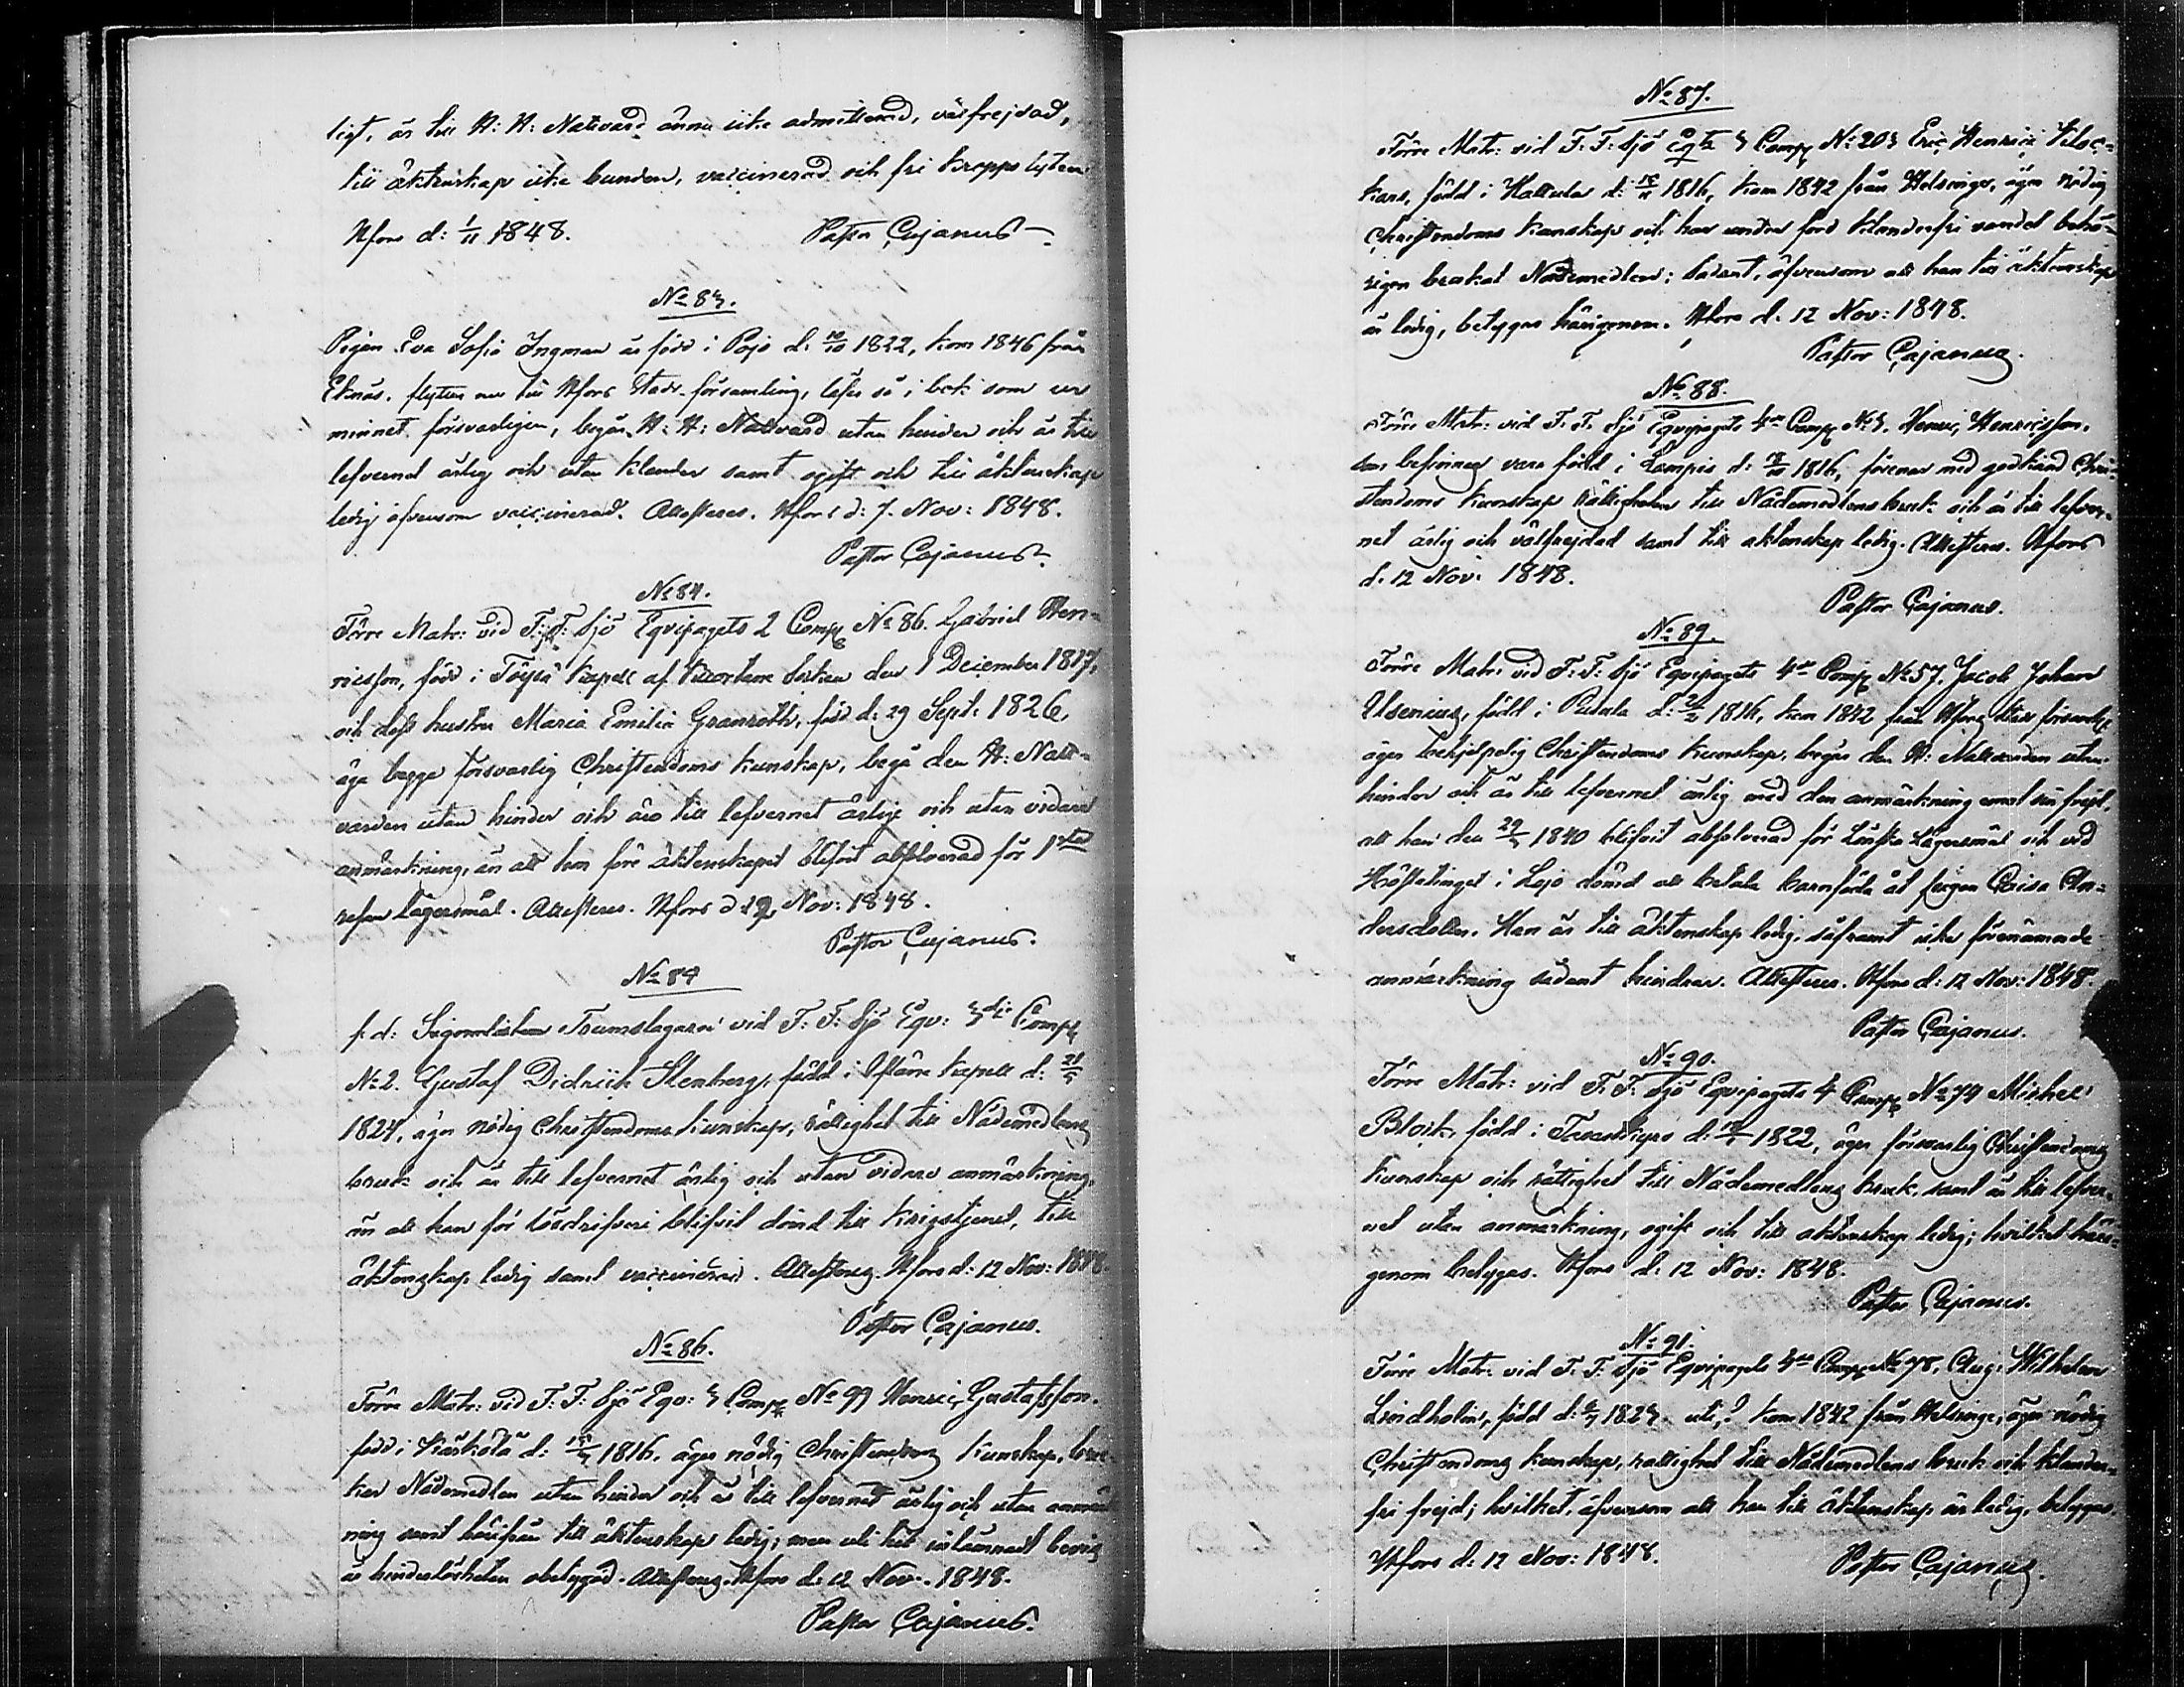 ligt, är till H: H: Nattvard ännu icke admitterad, välfrejdad,
till äktenskap icke bunden, vaccinerad och fri kropps lyten
Hfors d: 1/11 1848. Pastor Cajanus
No 83.
Pigan Eva Sofia Ingman är född i Pojo d: 1822, kom 1846 från
Ekenäs, flyttar nu till Hfors Stads församling, läser så i bok som ur
minnet försvarligen, begår H: H: Nattvard utan hinder och är till
lefvernet ärlig och utan klander samt ogift och till äktenskap
ledig äfvensom vaccinerad. Attesteras. Hfors d: 7. Nov: 1848.
Pastor Cajanus
No 84.
Förre Matr: vid F: F: Sjö Eqvipagets 2 Comp No 86. Gabriel Hen=
ricsson, född i Töysä Kapell af Kuortane Socken den 1 December 1817,
och dess hustru Maria Emilia Granroth, född d: 29 Sept: 1826,
äga begge försvarlig Christendoms kunskap, begå den H: Natt=
varden utan hinder och äro till lefvernet ärlige och utan vidare
anmärkning, än att hon före äktenskapet blifvit absolverad för 1sta
resan lägersmål. Attesteras. Hfors d: Nov: 1848.
Pastor Cajanus.
No 84
f. d: Trumslagaren vid F: F: Sjö Eqv: 3die Comp
No 2. Gustaf Didrich Stenberg, född i Kapell d:
1827, äger nödig Christendoms kunskap, rättighet till Nådemedlens
bruk och är till lefvernet ärlig och utan vidare anmärkning,
än att han för lösdrifveri blifvit dömd till krigstjenst, till
äktenskap ledig samt vaccinerad. Attesteras. Hfors d: 12 Nov: 1848.
Pastor Cajanus.
No 86.
Förre Matr: vid F: F: Sjö Eqv: 3 Comp No 99 Henric Gustafsson,
född i Kärkölä d: 1816, äger nödig Christendoms kunskap, bru=
kar Nådemedlen utan hinder och är till lefvernet ärlig och utan anmärk
ning samt härifrån till äktenskap ledig; men uti hit inlämnadt bevis
är hinderlösheten obetygad. Attesteras. Hfors d: 12 Nov: 1848.
Pastor Cajanus.
No 87.
Förre Matr: vid F: F: Sjö Eqts 3 Comp No 203 Eric Henric
född i Hattula d: 1816, kom 1842 från Helsinge, äger nödig
Christendoms kunskap och har under förd klanderfri vandel behö=
rigen brukat Nådemedlen; sådant, äfvensom att han till äktenskap
är ledig, betygas härigenom. Hfors d: 12 Nov: 1848.
Pastor Cajanus.
No 88.
Förre Matr: vid F. F. Sjö Eqvipagets 4de Comp No 3. Henric Henricsson,
som befinnes vara född i Lampis d: 1816, förenar med godkänd Chri=
stendoms kunskap rättigheten till Nådemedlens bruk och är till lefver=
net ärlig och välfrejdad samt till äktenskap ledig. Attesteras. Hfors
d. 12 Nov: 1848.
Pastor Cajanus.
No 89.
Förre Matr: vid F: F: Sjö Eqvipagets 4de Comp No 57. Jacob Johan
Ulsenius, född i Pusula d: 1816, kom 1842 från Hfors Stads församling
äger behjelpelig Christendoms kunskap, begår den H: Nattvarden utan
hinder och är till lefvernet ärlig med den anmärkning emot sin frejd,
att han den 1840 blifvit absolverad för Lönska Lägersmål och vid
Höstetinget i Lojo dömd att betala barnföda åt pigan Caisa An=
dersdotter. Han är till äktenskap ledig, såframt icke förenämnde
anmärkning sådant hindrar. Attesteras. Hfors d: 12 Nov: 1848.
Pastor Cajanus.
No 90.
Förre Matr: vid F. F: Sjö Eqvipagets 4 Comp No 79 Michel
född i d: 1822, äger försvarlig Christendoms
kunskap och rättighet till Nådemedlens bruk, samt är till lefver=
net utan anmärkning, ogift och till äktenskap ledig; hvilket här=
genom betygas. Hfors d: 12 Nov: 1848.
Pastor Cajanus.
No 91.
Förre Matr: vid F. F: Sjö Eqvipagets 4de Comp No 78, Aug: Wilhelm
Lindholm, född d: 1823 uti? kom 1842 från Helsinge, äger nödig
Christendoms kunskap, rättighet till Nådemedlens bruk och klander=
fri frejd; hvilket, äfvensom att han till äktenskap är ledig, betygas.
Hfors d: 12 Nov: 1848. Pastor Cajanus.